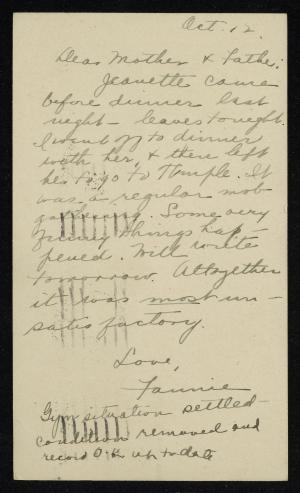 Oct. 12.
Dear Mother & Father:
Jeanette came
before dinner last
night - leaves tonight.
I went to dinner
with her, & then left
her to go to Temple. It
was a regular mob
gathering. Some very
funny things hap-
pened. Will write
tomorrow. Altogether
it was most un-
satisfactory.
Love,
Fannie
Gym situation settled -
condition removed and
record O.K. up to date